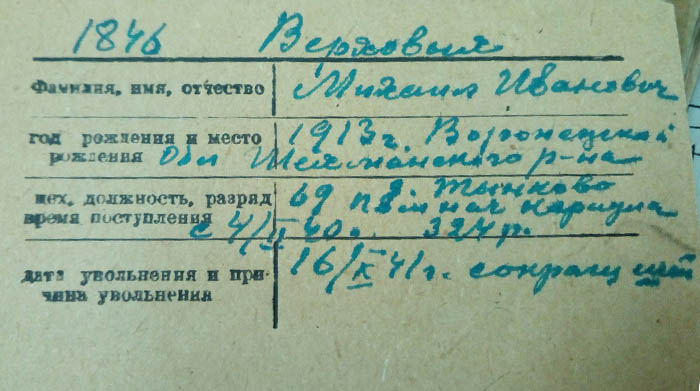 1846 Верховых
Фамилия, имя, отчество Михаил Иванович
год рождения и место 1913 г. Воронежской
рождения Обл Шехманского р-на
цех, должность, разряд 69 пом нач караула
время поступления с 4/II 40 г. 324 р.
дата увольнения и при- 16/X 41 г. сокращ шт
чина увольнения